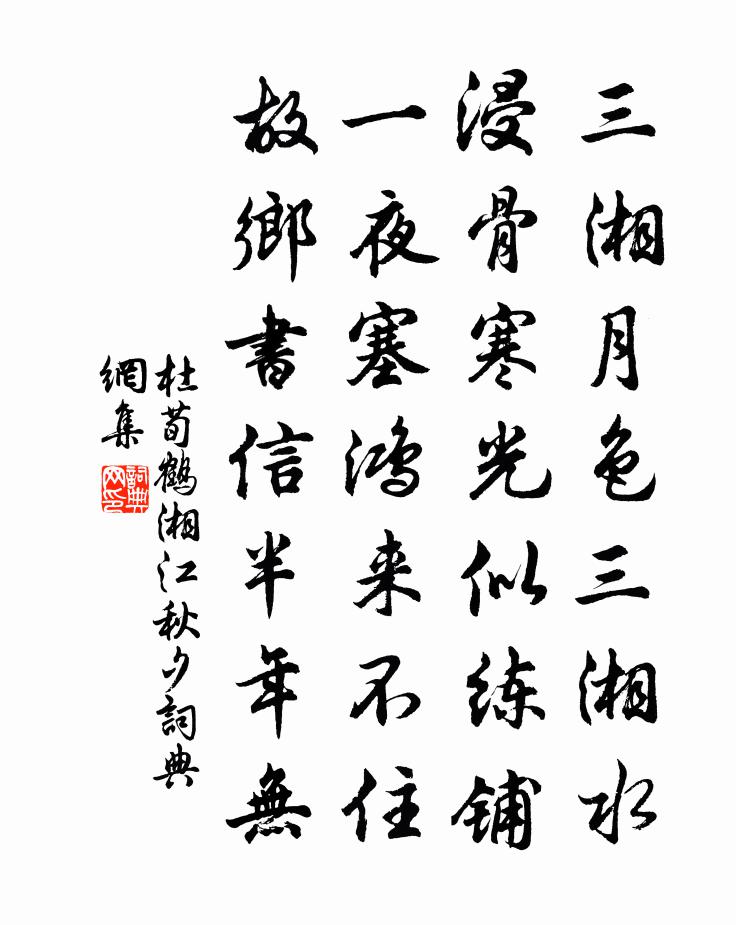 三湘月色三湘水
浸骨寒光似练铺
一夜塞鸿来不住
故鄉書信半年無
杜荀鶴湘江秋夕詞典
網集
詞典
网印